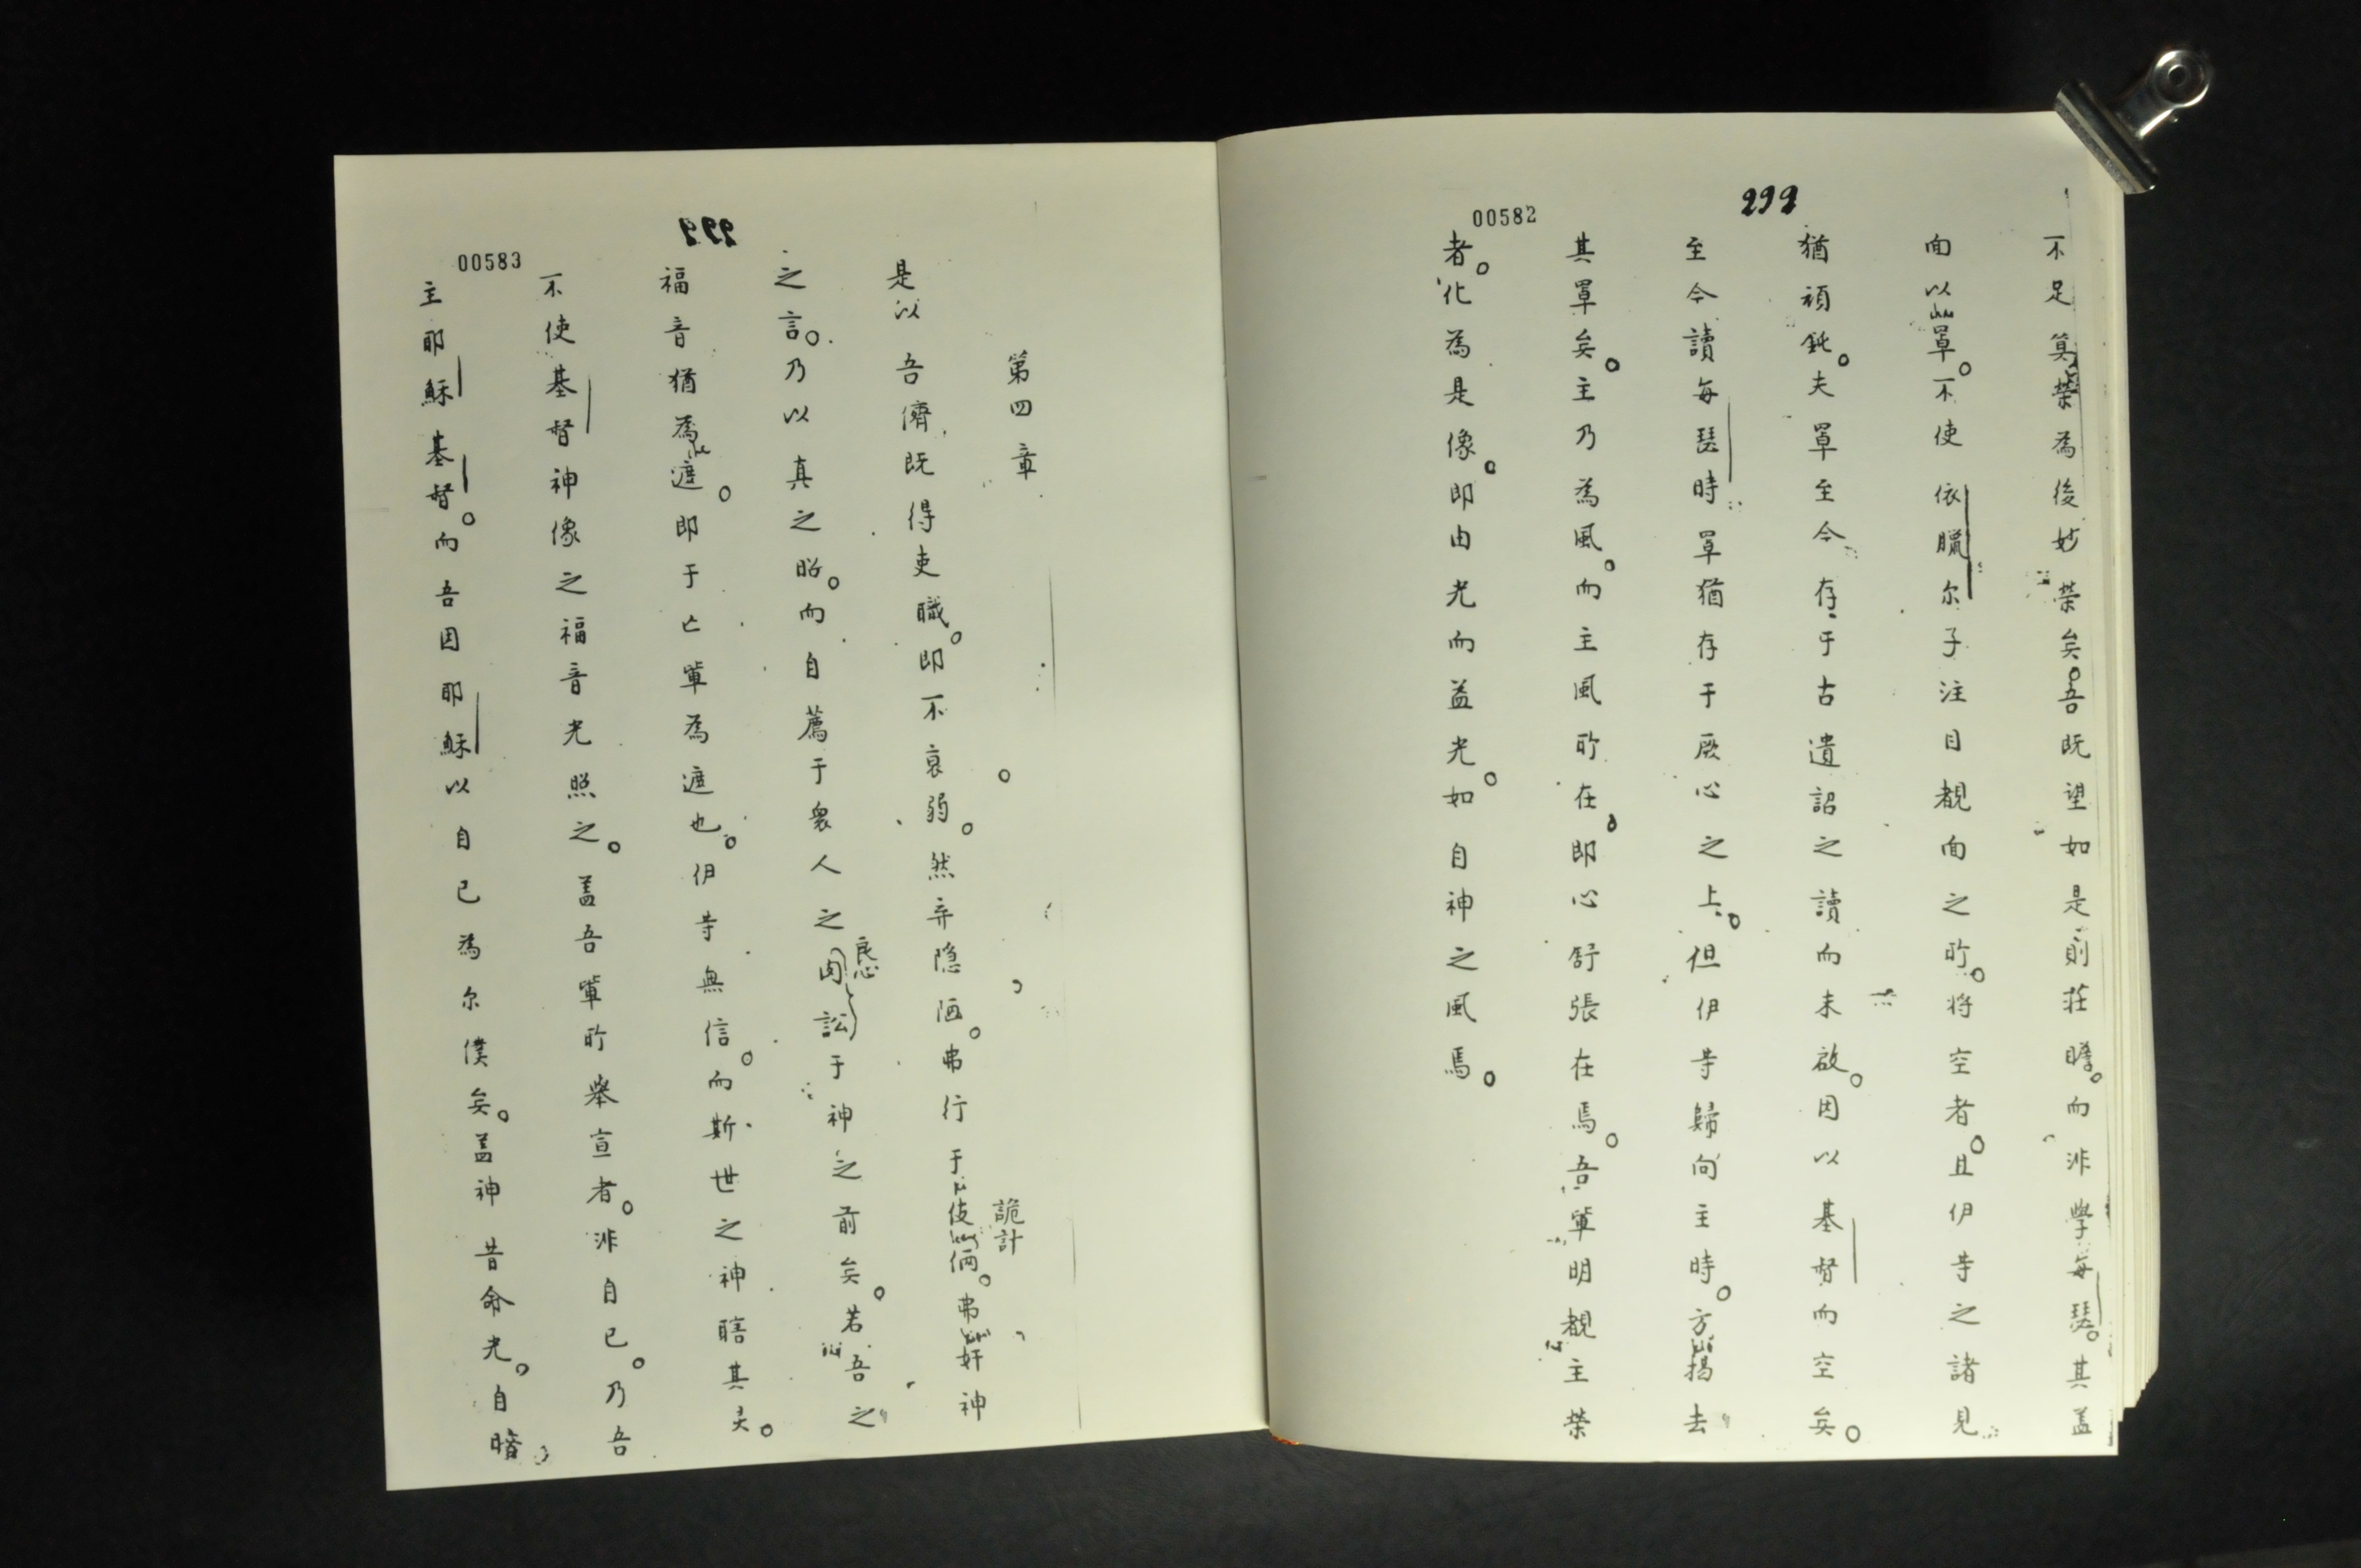 299
00582
不足筭榮為後妙榮矣。吾既望如是則莊瞻。而非學每瑟。其盖
面以罩。不使依臘尔子注目覩面之所。将空者。且伊等之諸見
猶頑鈍。夫罩至今存于古遺詔之讀而未啟。因以基督而空矣。
至今讀每瑟時罩猶存于厥心之上。但伊等歸向主時。方揭去
其罩矣。主乃為風。而主風所在。即心舒張在焉。吾軰明覩主榮
者。化為是像。即由光而益光。如自神之風焉。
299
00583
第四章
是以吾儕既得吏職。即不衰弱。然弃隐陋。弗行于伎倆。弗奸神
詭計
之言。乃以真之昭。而自薦于衆人之内訟于神之前矣。若吾之
良心
福音猶為遮。即于亡軰為遮也。伊等無信。而斯世之神瞎其灵。
不使基督神像之福音光照之。盖吾軰所舉宣者。非自已。乃吾
主耶穌基督。而吾因耶穌以自已為尔僕矣。盖神昔命光。自暗